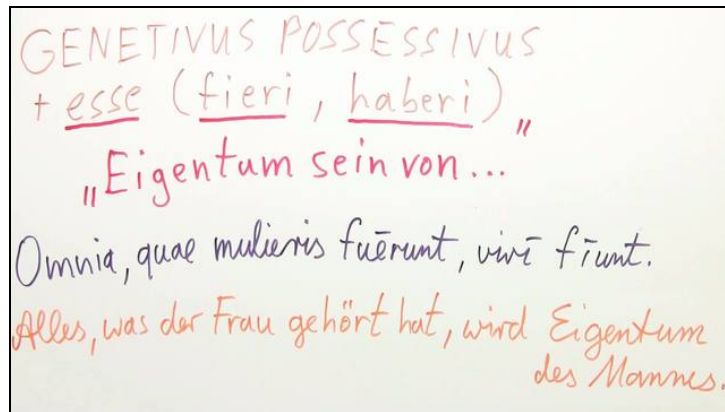 GENETIVUS POSSESSIVUS
+ esse (fieri, haberi)
„Eigentum sein von..."
Omnia, quae mulieris fuērunt, virī fīunt.
Alles, was der Frau gehört hat, wird Eigentum
des Mannes.